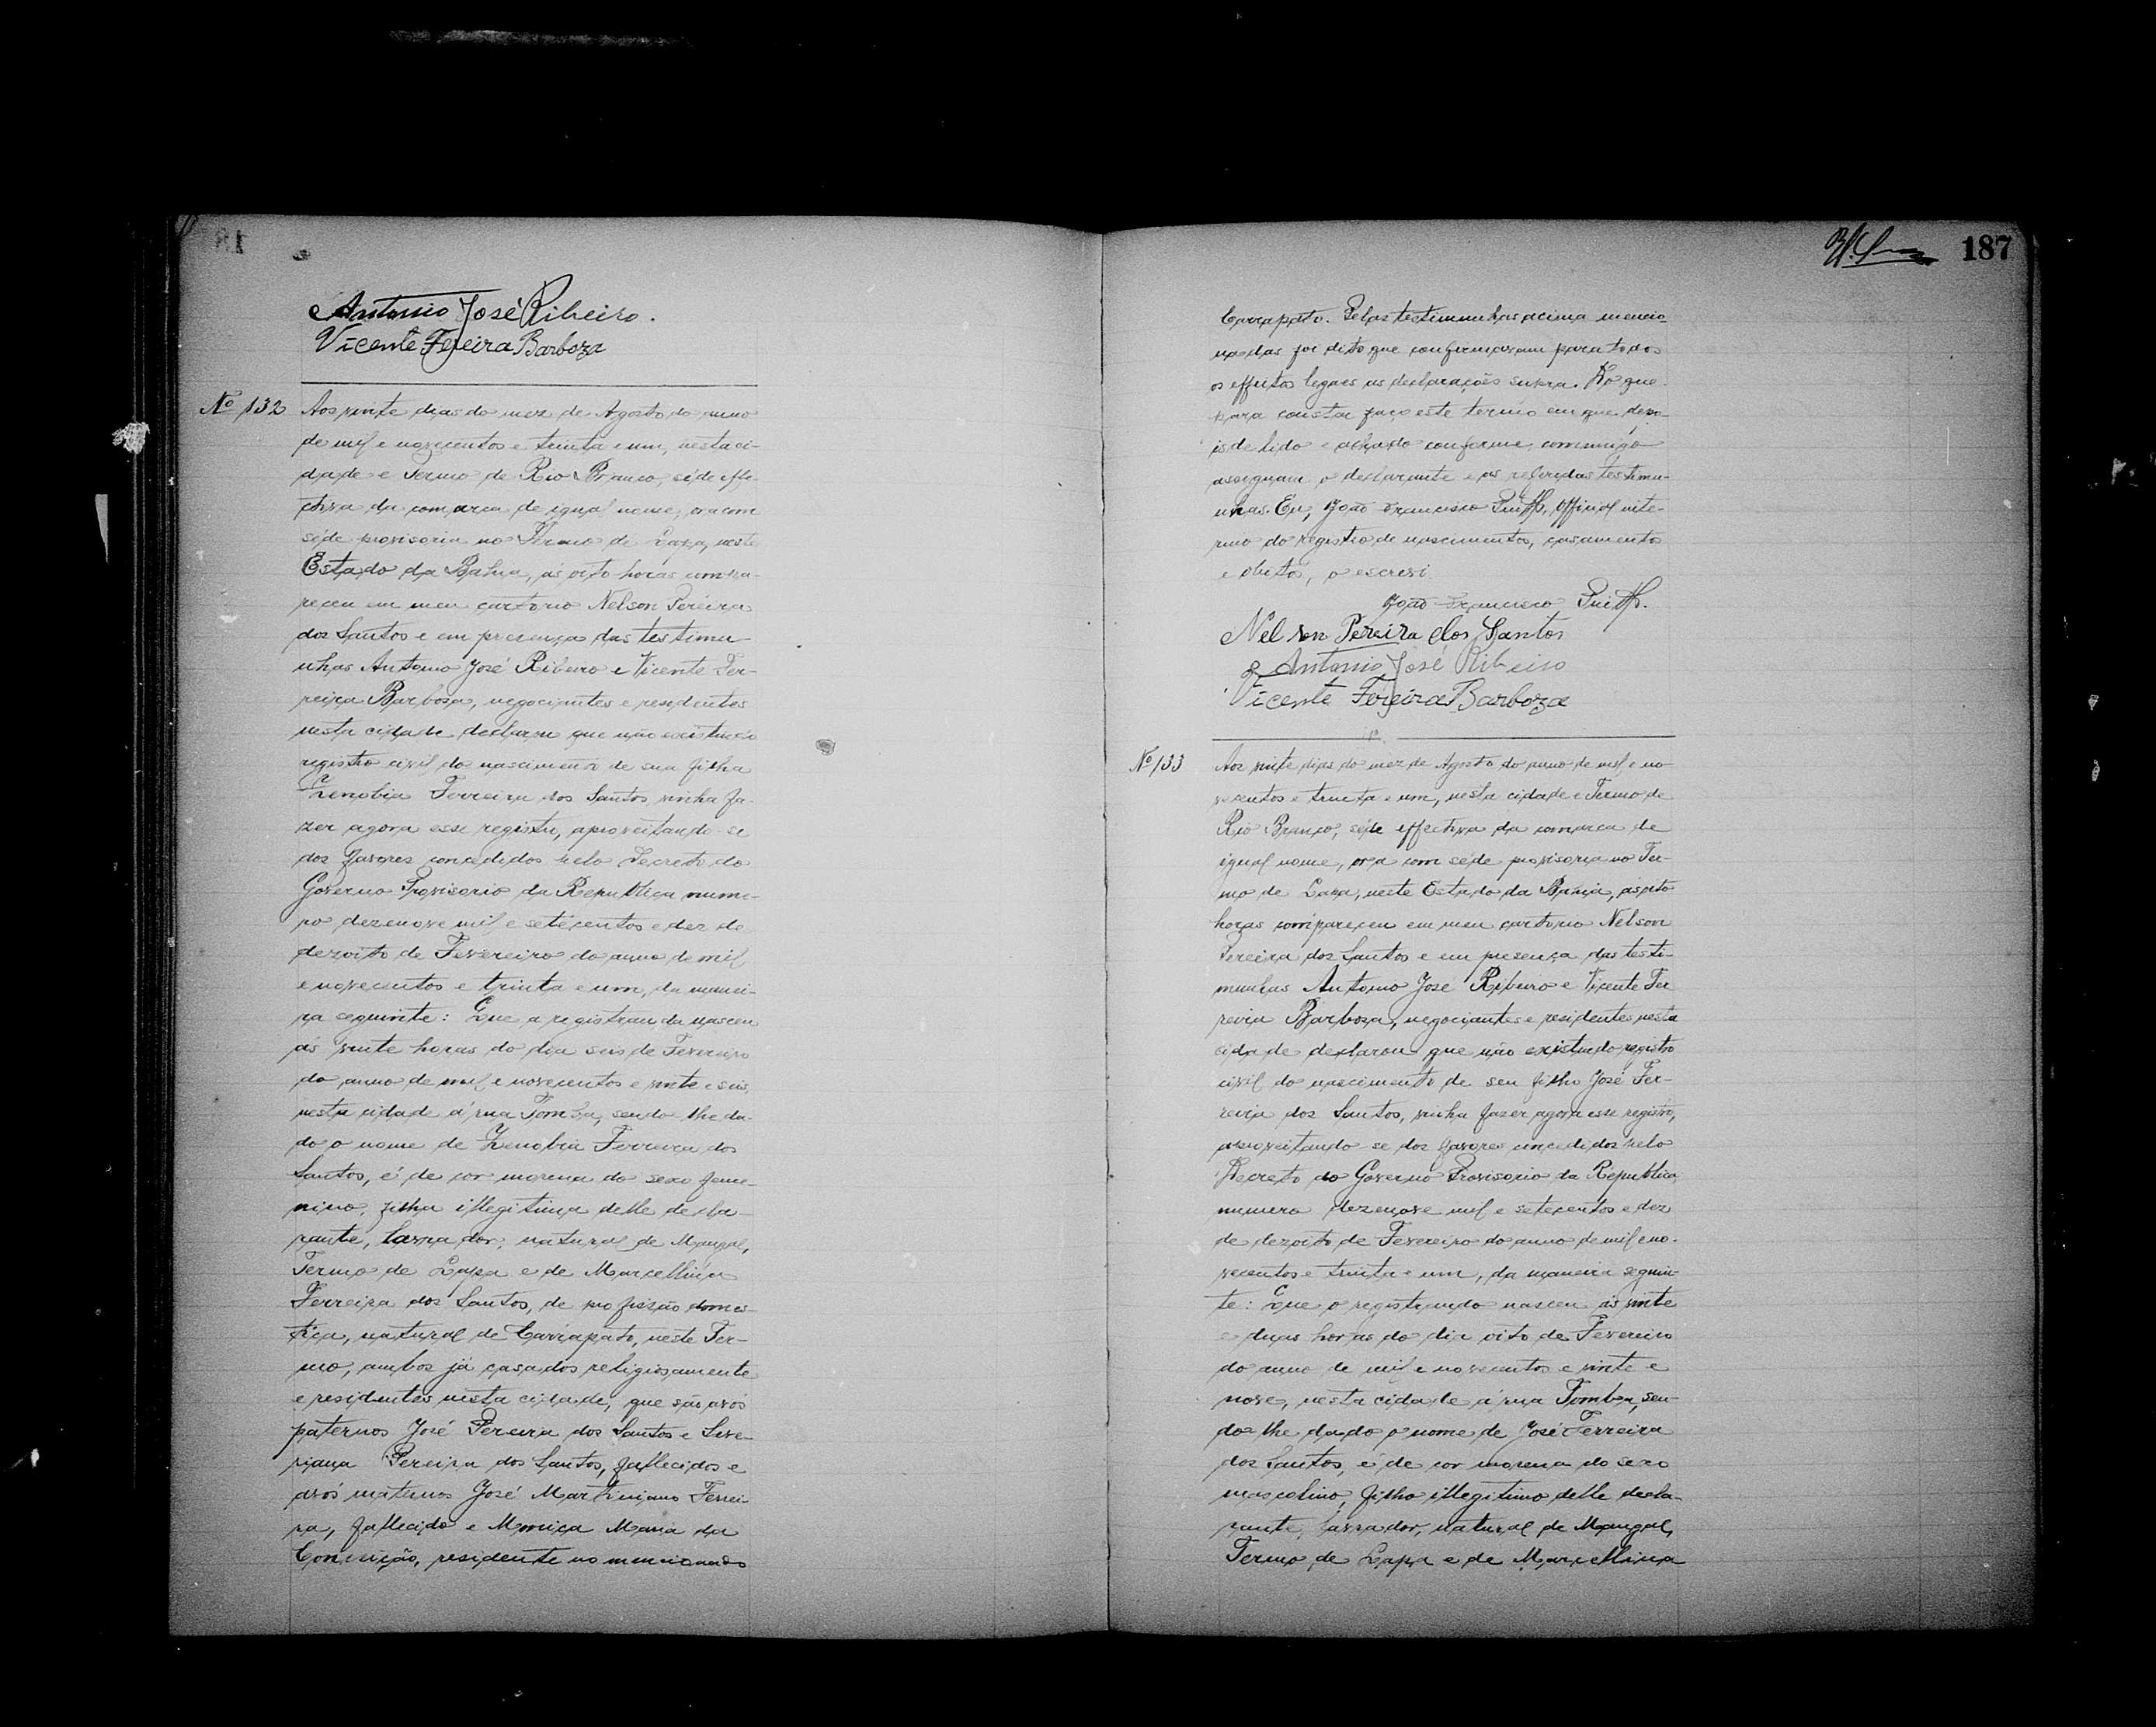 Antonio José Ribeiro.
Vicente Fereira Barboza
Nº 132
Aos vinte dias do mez de Agosto do anno
de mil e novecentos e trinta e um, nesta ci-
dade e Termo de Rio Branco, séde effe-
ctiva da comarca de igual nome, ora com
séde provisoria no Termo de Lapa, neste
Estado da Bahia, ás oito horas compa-
receu em meu cartorio Nelson Pereira
dos Santos e em presença das testimu-
nhas Antonio José Ribeiro e Vicente Fer-
reira Barbosa, negociantes e residentes
nesta cidade declarou que não existindo
registro civil do nascimento de sua filha
Zenobia Ferreira dos Santos vinha fa-
zer agora esse registro, aproveitando-se
dos favores concedidos pelo Decreto do
Governo Provisorio da Republica nume-
ro dezenove mil e setecentos e dez de
dezoito de Fevereiro do anno de mil
e novecentos e trinta e um, da manei-
ra seguinte: Que a registranda nasceu
ás vinte horas do dia seis de Fevereiro
do anno de mil e novecentos e vinte e seis,
nesta cidade á rua Tomba, sendo lhe da-
do o nome de Zenobia Ferreira dos
Santos, é de cor morena do sexo feme-
nino, filha illegitima delle decla-
rante, lavrador, natural de Mangal,
Termo de Lapa e de Marcellina
Ferreira dos Santos, de profissão domes-
tica, natural de Carrapato, neste Ter-
mo, ambos já casados religiosamente
e residentes nesta cidade, que são avós
paternos José Pereira dos Santos e Seve-
riana Pereira dos Santos, fallecidos e
avós maternos José Martiniano Ferrei-
ra, fallecido e Monica Maria da
Conceição, residente no mencionado
187
Carrapato. Pelas testimunhas acima mencio-
nadas foi dito que confirmavam para todos
os effeitos legaes as declarações supra. Do que
para constar faço este termo em que depo-
is de lido e achado conforme, commigo
assignam o declarante e as referidas testimu-
nhas. Eu, João Francisco, Official inte-
rino do registro de nascimentos, casamentos
e obitos, o escrevi
João Francisco
Nelson Pereira dos Santos
Antonio José Ribeiro
Vicente Fereira Barboza
Nº 133
Aos vinte dias do mez de Agosto do anno de mil e no-
vecentos e trinta e um, nesta cidade e Termo de
Rio Branco, séde effectiva da comarca de
igual nome, ora com séde provisoria no Ter-
mo de Lapa, neste Estado da Bahia, ás oito
horas compareceu em meu cartorio Nelson
Pereira dos Santos e em presença das testi-
munhas Antonio José Ribeiro e Vicente Fer
reira Barboza, negociantes e residentes nesta
cidade declarou que não existindo registro
civil do nascimento de seu filho José Fer-
reira dos Santos, vinha fazer agora esse registro,
aproveitando-se dos favores concedidos pelo
Decreto do Governo Provisorio da Republica
numero dezenove mil e setecentos e dez
de dezoito de Fevereiro do anno de mil e no-
vecentos e trinta e um, da maneira seguin-
te: Que o registrando nasceu ás vinte
e duas horas do dia oito de Fevereiro
do anno de mil e novecentos e vinte e
nove, nesta cidade á rua Tomba, sen-
do-lhe dado o nome de José Ferreira
dos Santos, é de cor morena do sexo
masculino, filho illegitimo delle decla-
rante, lavrador, natural de Mangal,
Termo de Lapa e de Marcellina